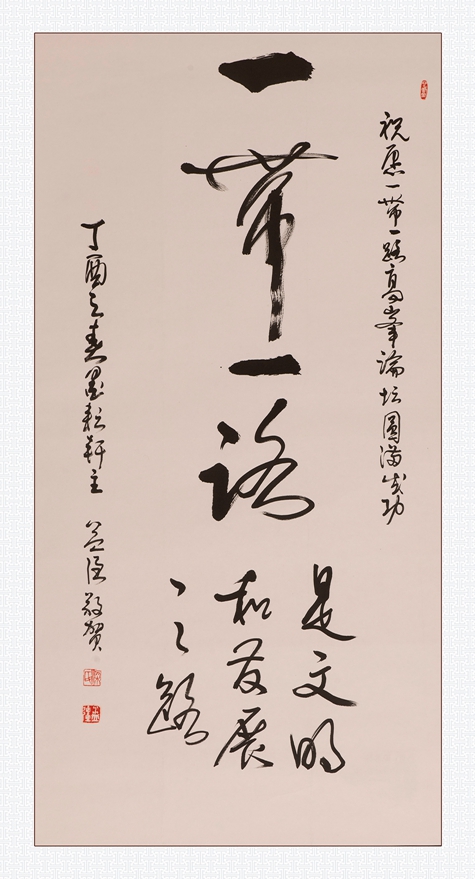 祝愿一带一路高峯論坛圓满成功
一带一路
是文明
和发展
之路
丁酉之春墨耘轩主 益 敬贺